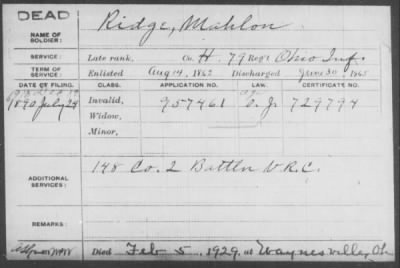 DEAD
NAME OF SOLDIER: Ridge, Mahlon
SERVICE: Late rank, Co. H. 79 Reg't Ohio Inf.
TERM OF SERVICE: Enlisted Aug 14, 1862 Discharged June 30, 1865
DATE OF FILING. CLASS. APPLICATION NO. LAW. CERTIFICATE NO.
1890 July 24 Invalid, 957461 C. J. 729794
Widow,
Minor,
ADDITIONAL SERVICES: 148 Co. 2 Battln V.R.C.
REMARKS:
Died Feb 5, 1929, at Waynesville, Oh